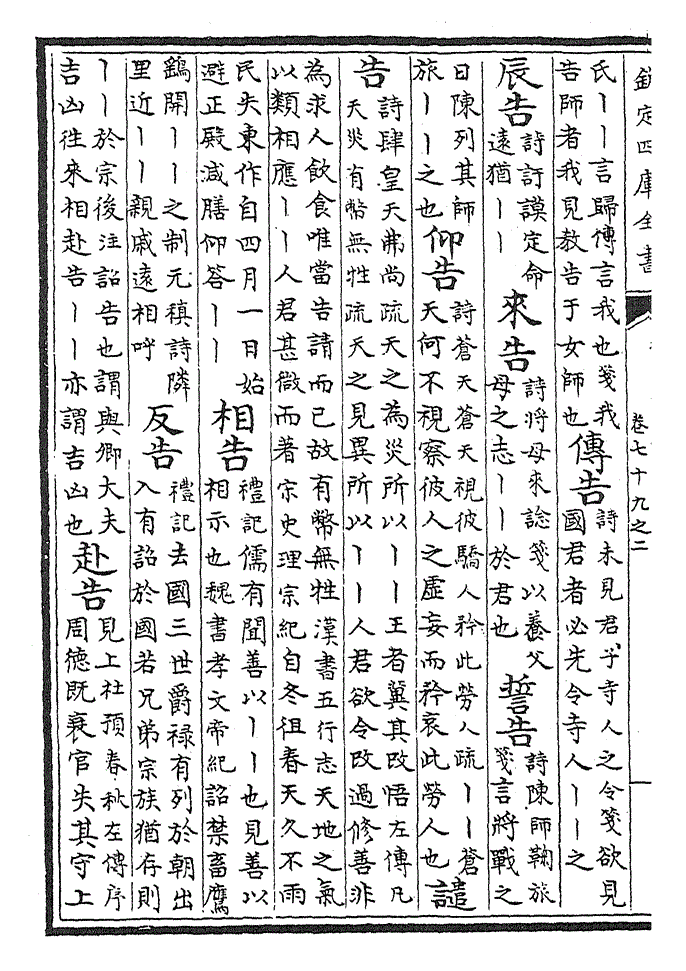 欽定四庫全書
卷七十九之二
氏丨丨言歸傳言我也箋我
告師者我見教告于女師也
傳告
詩未見君子寺人之令箋欲見
國君者必先令寺人丨丨之
辰告
詩訏謨定命
遠猶丨丨
來告
詩將母來諗箋以養父
母之志丨丨於君也
誓告
詩陳師鞠旅
箋言將戰之
日陳列其師
旅丨丨之也
仰告
詩蒼天蒼天視彼驕人矜此勞人疏丨丨蒼
天何不視察彼人之虛妄而矜哀此勞人也
譴
告
詩肆皇天弗尚疏天之為災所以丨丨王者冀其改悟左傳凡
天災有幣無牲疏天之見異所以丨丨人君欲令改過修善非
為求人飲食唯當告請而已故有幣無牲漢書五行志天地之氣
以類相應丨丨人君甚微而著宋史理宗紀自冬徂春天久不雨
民失東作自四月一日始
避正殿減膳仰答丨丨
相告
禮記儒有聞善以丨丨也見善以
相示也魏書孝文帝紀詔禁畜鷹
鷂開丨丨之制元稹詩隣
里近丨丨親戚遠相呼
反告
禮記去國三世爵祿有列於朝出
入有詔於國若兄弟宗族猶存則
丨丨於宗後注詔告也謂與卿大夫
吉凶徃來相赴告丨丨亦謂吉凶也
赴告
見上社預春秋左傳序
周德既衰官失其守上